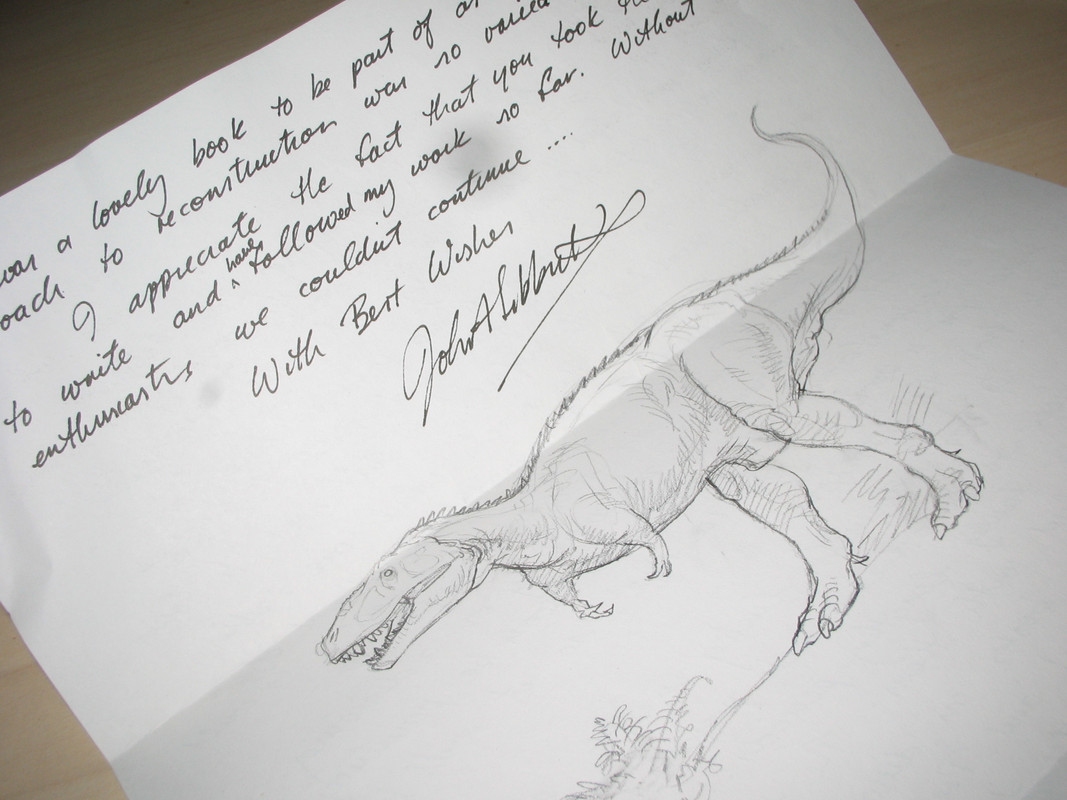 was a lovely book to be part of
oach to reconstruction was so varied
I appreciate the fact that you took the
to write and have followed my work so far. Without
enthusiasts we couldn't continue ...
With Best Wishes
John A Sibbick